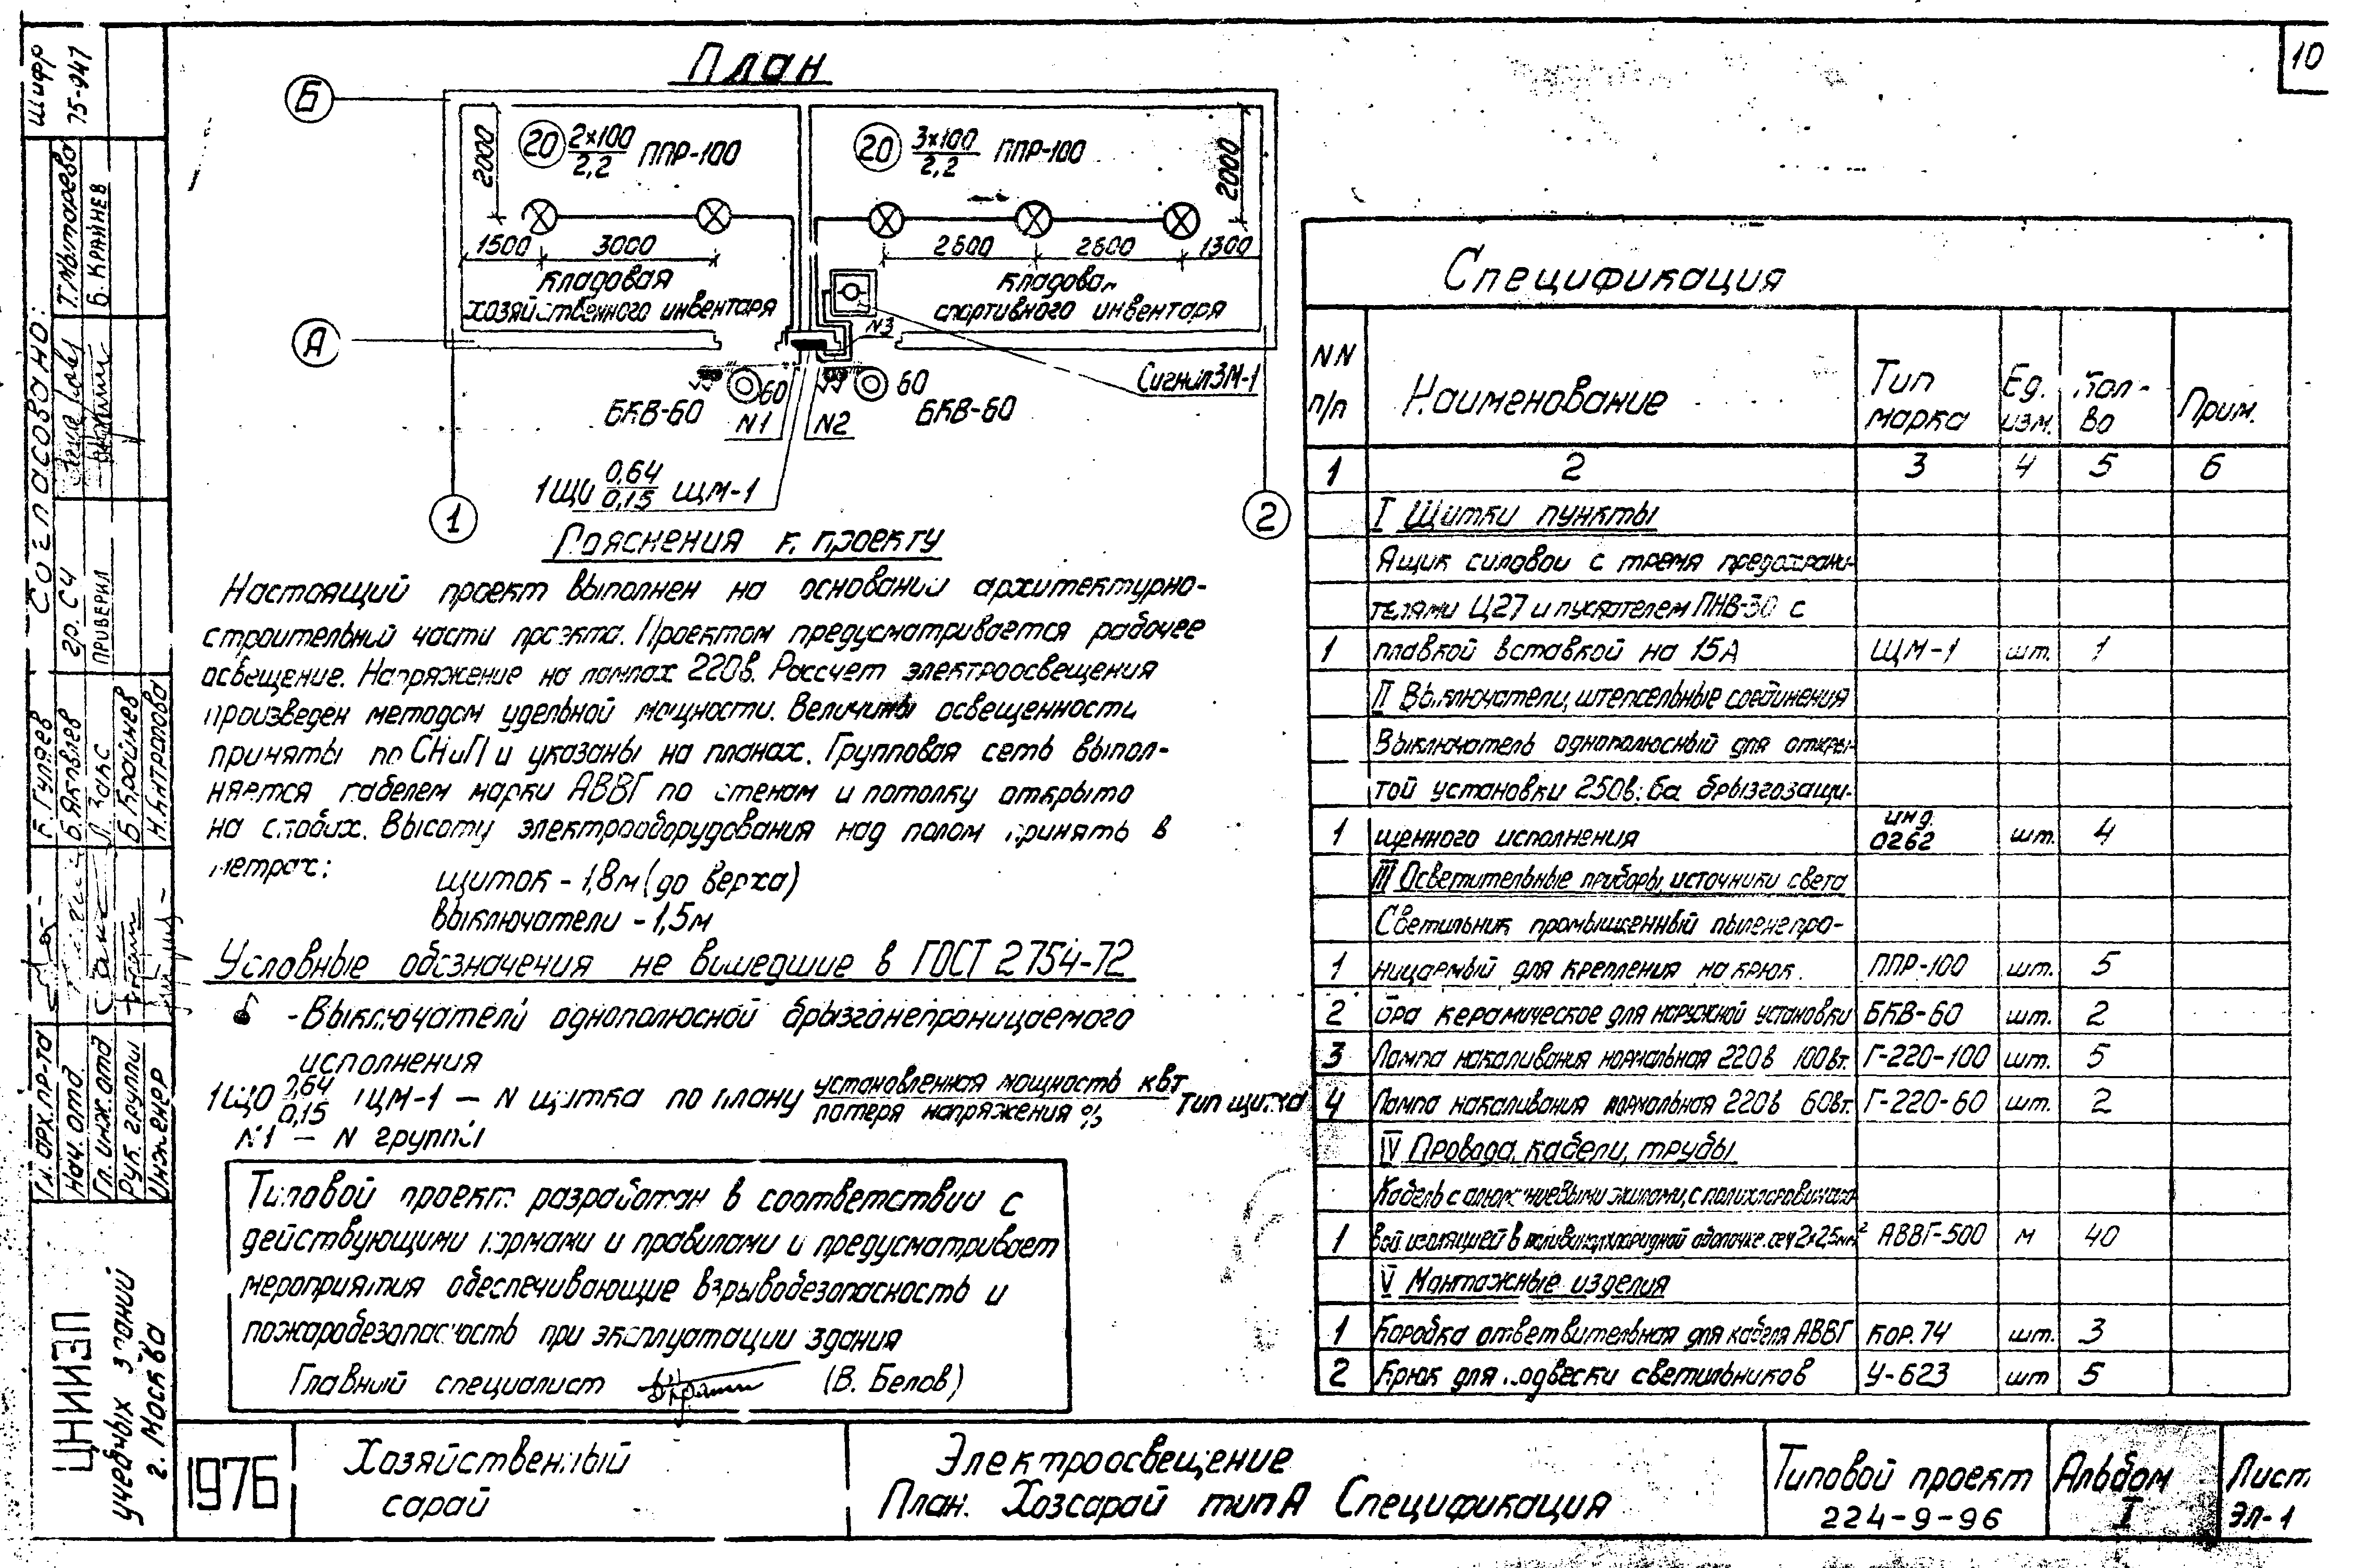 10
План
Б
20 2х100 ППР-100
2,2
20 3х100 ППР-100
2,2
2000
2000
1500 3000
2600 2600 1300
Кладовая
хозяйственного инвентаря
спортивного инвентаря
N3
А
Сигнал3М-1
60
60
БКВ-60
БКВ-60
N1 N2
1ЩО 0,64 ЩМ-1
0,15
1
2
Пояснения к проекту
Настоящий проект выполнен на основании архитектурно-
строительной части проэкта. Проектом предусматривается рабочее
освещение. Напряжение на лампах 220в. Рассчет электроосвещения
произведен методом удельной мощности. Величины освещенности
приняты по СНиП и указаны на планах. Групповая сеть выпол-
няется кабелем марки АВВГ по стенам и потолку открыто
на скобах. Высоту электрооборудования над полом принять в
метрах:
щиток - 1,8м (до верха)
выключатели - 1,5м
Условные обозначения не вишедшие в ГОСТ 2754-72
- Выключатели однополюсной брызгонепроницаемого
исполнения
1ЩО 0,64 ЩМ-1 – N щитка по плану установленная мощность квт тип щитка
0,15 потеря напряжения %
N1 – N группы
Типовой проект разработан в соответствии с
действующими нормами и правилами и предусматривает
мероприятия обеспечивающие взрывобезопасность и
пожаробезопасность при эксплуатации здания
Главный специалист (В. Белов)
Спецификация
NN п/п Наименование Тип марка Ед. изм. Кол-во Прим.
1 2 3 4 5 6
I Щитки пункты
Ящик силовой с тремя предохрани-
телями Ц27 и пускателем ПНВ-30 с
1 плавкой вставкой на 15А ЩМ-1 шт. 1
II Выключатели, штепсельные соединения
Выключатель однополюсный для откры-
той установки 250в: 6а брызгозащи-
1 щенного исполнения инд. 0262 шт. 4
III Осветительные приборы, источники света
Светильник промышленный пыленепро-
1 ницаемый для крепления на крюк. ППР-100 шт. 5
2 бра керамическое для наружной установки БКВ-60 шт. 2
3 Лампа накаливания нормальная 220в 100вт. Г-220-100 шт. 5
4 Лампа накаливания нормальная 220в 60вт. Г-220-60 шт. 2
IV Провода, кабели, трубы
Кабель с алюминиевыми жилами, с полихлорвинило-
1 вой изоляцией в поливинилхлоридной оболочке. сеч 2х2,5мм² АВВГ-500 м 40
V Монтажные изделия
1 Коробка ответвительная для кабеля АВВГ КОР.74 шт. 3
2 Крюк для подвески светильников У-623 шт 5
1976
Хозяйственный
сарай
Электроосвещение
План. Хозсарай тип А Спецификация
Типовой проект
224-9-96
Альбом
I
Лист
ЭЛ-1
Шифр
75-947
Согласовано:
Т. Мыторева
Б. КРАЙНЕВ
гр. СЧ
ПРИВЕРИЛ
Гл. арх. пр-та
Нач. отд
Гл. инж. отд
Рук. группы
Инженер
Г. Гуляев
Б. Яковлев
Закс
Б. Крайнев
Н. Антропова
ЦНИИЭП
учебных зданий
г. Москва